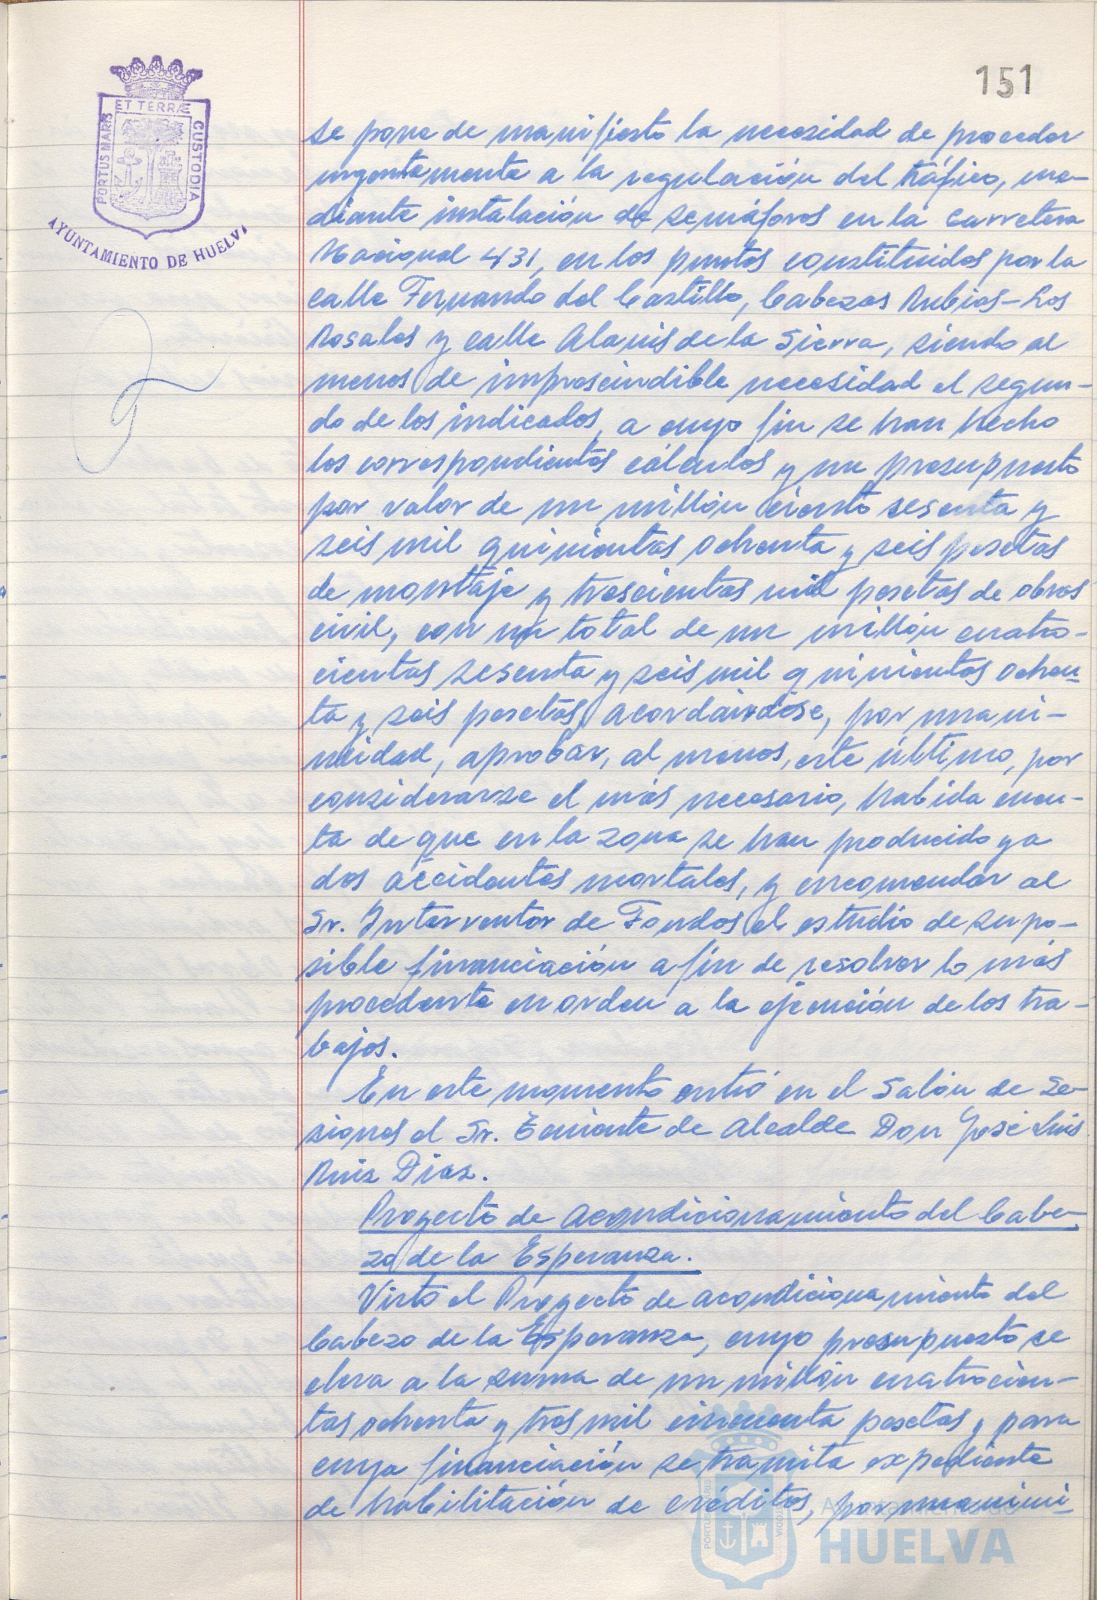 151
PORTUS MARIS ET TERRÆ CUSTODIA
AYUNTAMIENTO DE HUELVA
se pone de manifiesto la necesidad de proceder
urgentemente a la regulación del tráfico, me-
diante instalación de semáforos en la Carretera
Nacional 431, en los puntos constituidos por la
calle Fernando del Castillo, Cabezas Rubias-Los
Rosales y calle Alanis de la Sierra, siendo al
menos de imprescindible necesidad el segun-
do de los indicados, a cuyo fin se han hecho
los correspondientes cálculos y un presupuesto
por valor de un millón ciento sesenta y
seis mil quinientas ochenta y seis pesetas
de montaje y trescientas mil pesetas de obras
civil, con un total de un millón cuatro-
cientas sesenta y seis mil quinientas ochen-
ta y seis pesetas, acordándose, por unani-
midad, aprobar, al menos, este último, por
considerarse el más necesario, habida cuen-
ta de que en la zona se han producido ya
dos accidentes mortales, y encomendar al
Sr. Interventor de Fondos el estudio de su po-
sible financiación a fin de resolver lo más
procedente en orden a la ejecución de los tra-
bajos.
En este momento entró en el Salón de Se-
siones el Sr. Teniente de Alcalde Don José Luis
Ruiz Díaz.
Proyecto de acondicionamiento del Cabe-
zo de la Esperanza.
Visto el Proyecto de acondicionamiento del
Cabezo de la Esperanza, cuyo presupuesto se
eleva a la suma de un millón cuatrocien-
tas ochenta y tres mil cincuenta pesetas y para
cuya financiación se tramita expediente
de habilitación de créditos, por unanimi-
Ayuntamiento de
HUELVA